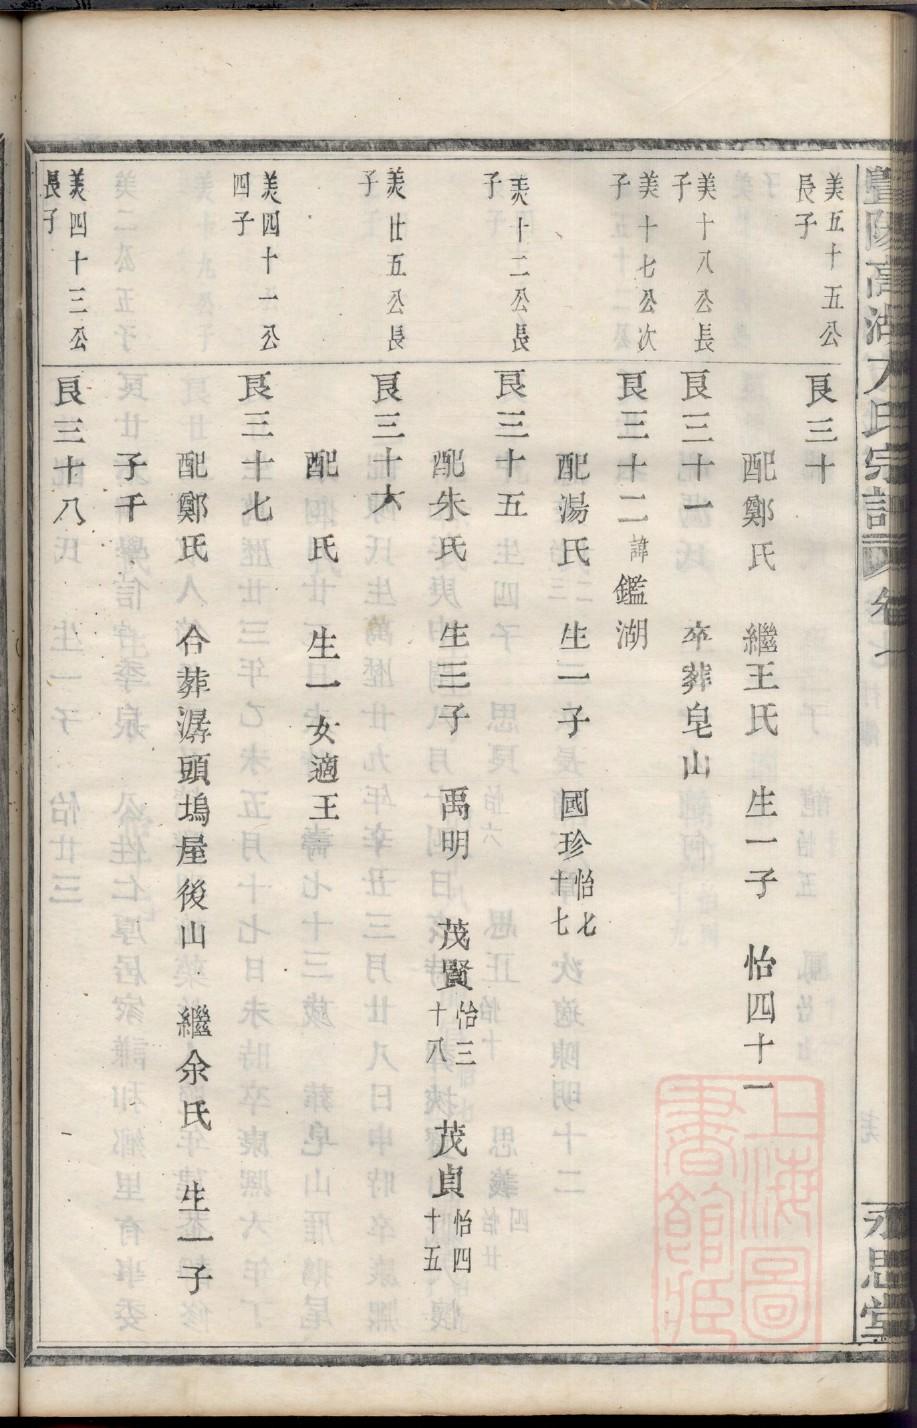 暨陽高湖方氏宗譜 卷七
永思堂
美五十五公
長子
良三十
配鄭氏 繼王氏 生一子 怡四十一
美十八公長
子
良三十一 卒葬皂山
美十七公次
子
良三十二諱鑑湖
配湯氏 生一子 國珍怡七十七
美十二公長
子
良三十五
配朱氏 生三子 禹明 茂賢怡三十八 茂貞怡四十五
美廿五公長
子
良三十六
配 氏 生一女適王
美四十一公
四子
良三十七
配鄭氏 合葬潺頭塢屋後山 繼余氏 生一子
子千
美四十三公
長子
良三十八
上海圖書館藏